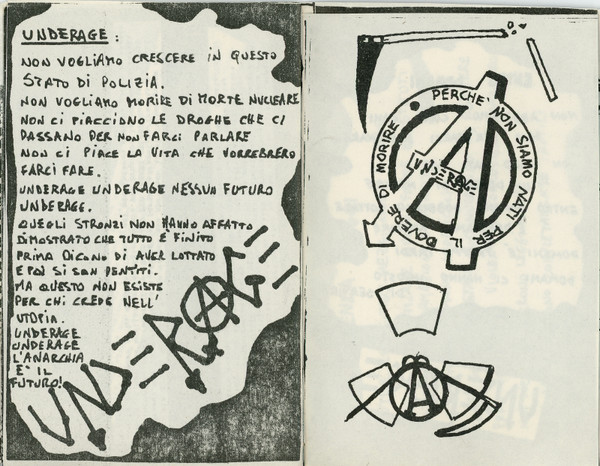 UNDERAGE:
NON VOGLIAMO CRESCERE IN QUESTO
STATO DI POLIZIA.
NON VOGLIAMO MORIRE DI MORTE NUCLEARE
NON CI PIACCIONO LE DROGHE CHE CI
PASSANO PER NON FARCI PARLARE
NON CI PIACE LA VITA CHE VORREBRERO
FARCI FARE.
UNDERAGE UNDERAGE NESSUN FUTURO
UNDERAGE.
QUEGLI STRONZI NON HANNO AFFATTO
DIMOSTRATO CHE TUTTO È FINITO
PRIMA DICONO DI AVER LOTTATO
E POI SI SON PENTITI.
MA QUESTO NON ESISTE
PER CHI CREDE NELL'
UTOPIA.
UNDERAGE
UNDERAGE
L'ANARCHIA
E' IL
FUTURO!
UNDERAGE
PERCHE' NON SIAMO NATI PER IL DOVERE DI MORIRE
UNDERAGE
A